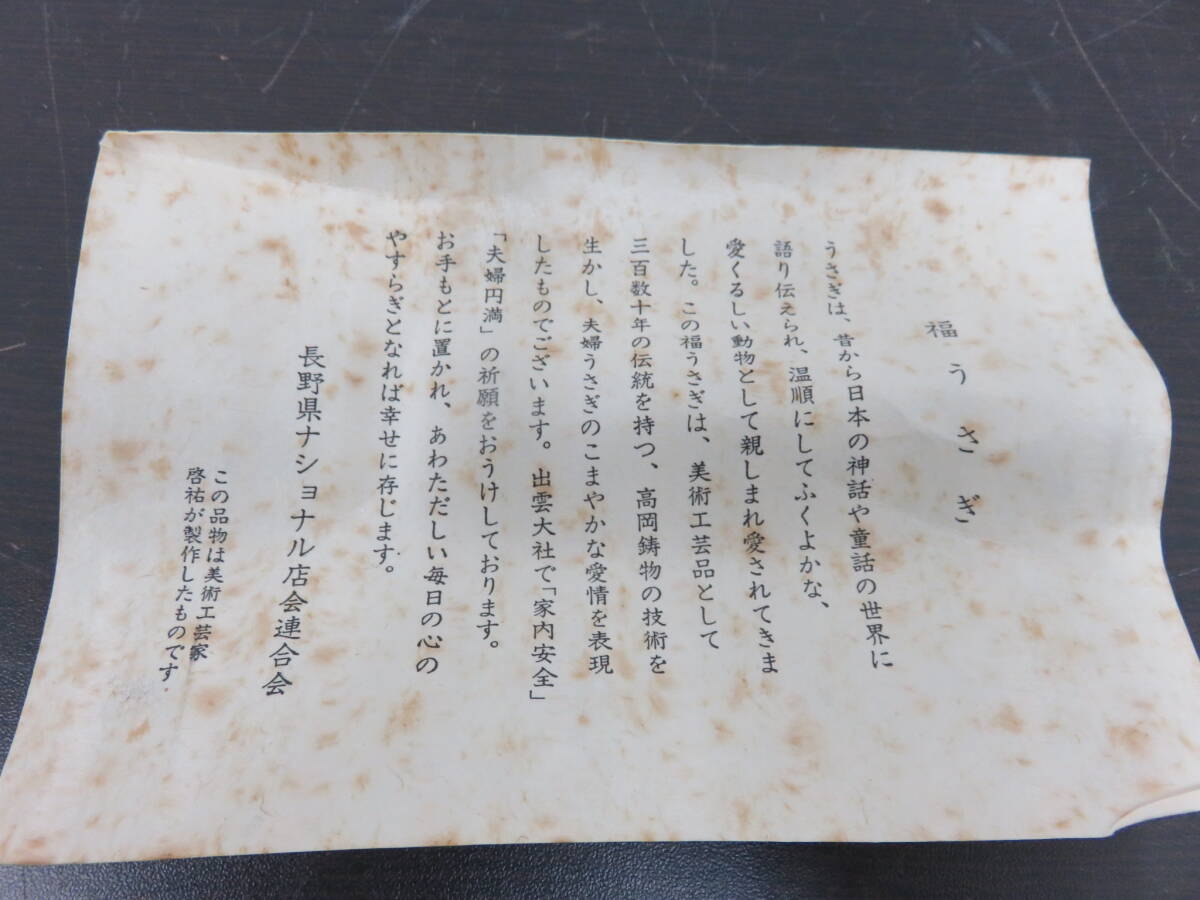 福うさぎ
うさぎは、昔から日本の神話や童話の世界に
語り伝えられ、温順にしてふくよかな、
愛くるしい動物として親しまれ愛されてきま
した。この福うさぎは、美術工芸品として
三百数十年の伝統を持つ、高岡鋳物の技術を
生かし、夫婦うさぎのこまやかな愛情を表現
したものでございます。出雲大社で「家内安全」
「夫婦円満」の祈願をおうけしております。
お手もとに置かれ、あわただしい毎日の心の
やすらぎとなれば幸せに存じます。
長野県ナショナル店会連合会
この品物は美術工芸家
啓祐が製作したものです